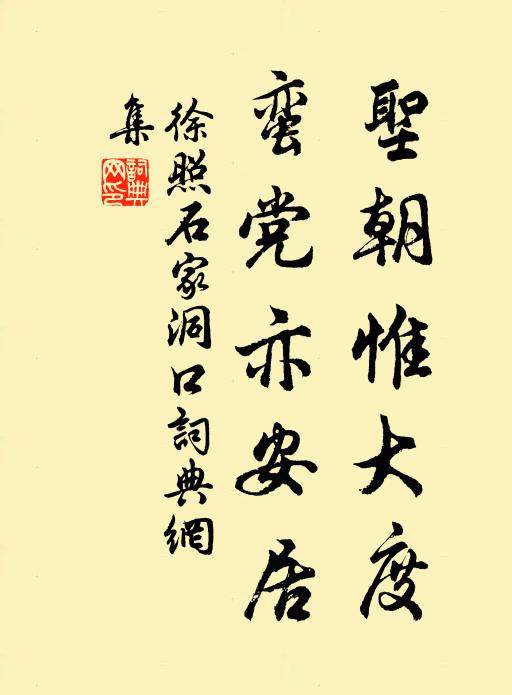 聖朝惟大度
蛮党亦安居
徐照石家洞口詞典網
集
詞典
网印